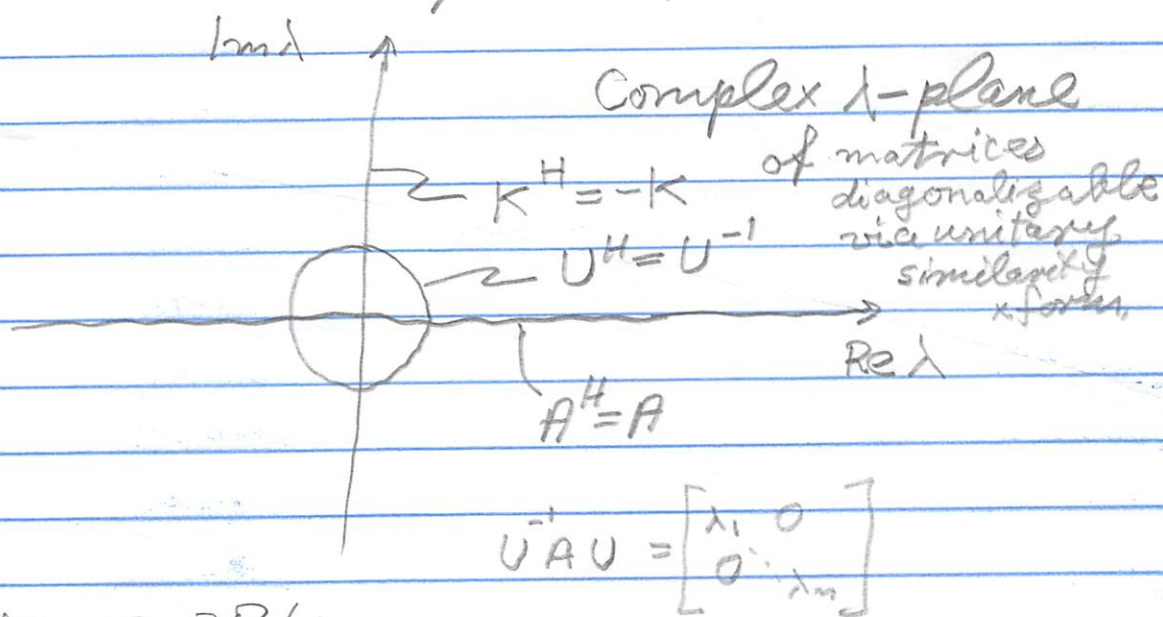 Im λ
Complex λ-plane
of matrices
diagonalizable
via unitary
similarity
xform.
K^H = -K
U^H = U^-1
Re λ
A^H = A
U^-1 A U = [λ1 0
0 ⋱ λn]